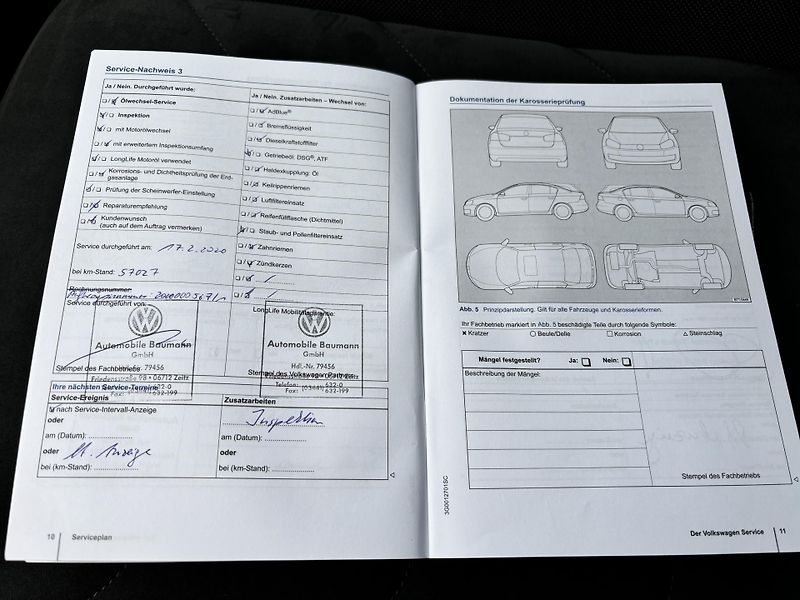 Service-Nachweis 3
Ja / Nein. Durchgeführt wurde:
Ölwechsel-Service
Inspektion
mit Motorölwechsel
mit erweitertem Inspektionsumfang
LongLife Motoröl verwendet
Korrosions- und Dichtheitsprüfung der Erd-
gasanlage
Prüfung der Scheinwerfer-Einstellung
Reparaturempfehlung
Kundenwunsch
(auch auf dem Auftrag vermerken)
Service durchgeführt am: 17.2.2020
bei km-Stand: 57027
Rechnungsnummer:
Service durchgeführt von:
Automobile Baumann
GmbH
Stempel des Fachbetriebs: 79456
Friedensstraße 98 • 06712 Zeitz
632-0
Fax: 632-199
Ja / Nein. Zusatzarbeiten – Wechsel von:
AdBlue®
Bremsflüssigkeit
Dieselkraftstofffilter
Getriebeöl: DSG®, ATF
Haldexkupplung: Öl
Keilrippenriemen
Luftfiltereinsatz
Reifenfüllflasche (Dichtmittel)
Staub- und Pollenfiltereinsatz
Zahnriemen
Zündkerzen
LongLife Mobilitätsgarantie:
Automobile Baumann
GmbH
Hdl.-Nr. 79456
Stempel des Volkswagen Partners
Telefon: (03441) 632-0
Fax: 632-199
Ihre nächsten Service-Termine
Service-Ereignis
nach Service-Intervall-Anzeige
oder
am (Datum):
oder
bei (km-Stand):
Zusatzarbeiten
Inspektion
am (Datum):
oder
bei (km-Stand):
10 Serviceplan
Dokumentation der Karosserieprüfung
Abb. 5 Prinzipdarstellung. Gilt für alle Fahrzeuge und Karosserieformen.
Ihr Fachbetrieb markiert in Abb. 5 beschädigte Teile durch folgende Symbole:
Kratzer Beule/Delle Korrosion Steinschlag
Mängel festgestellt? Ja: Nein:
Beschreibung der Mängel:
Stempel des Fachbetriebs
3G0012701SC
Der Volkswagen Service 11